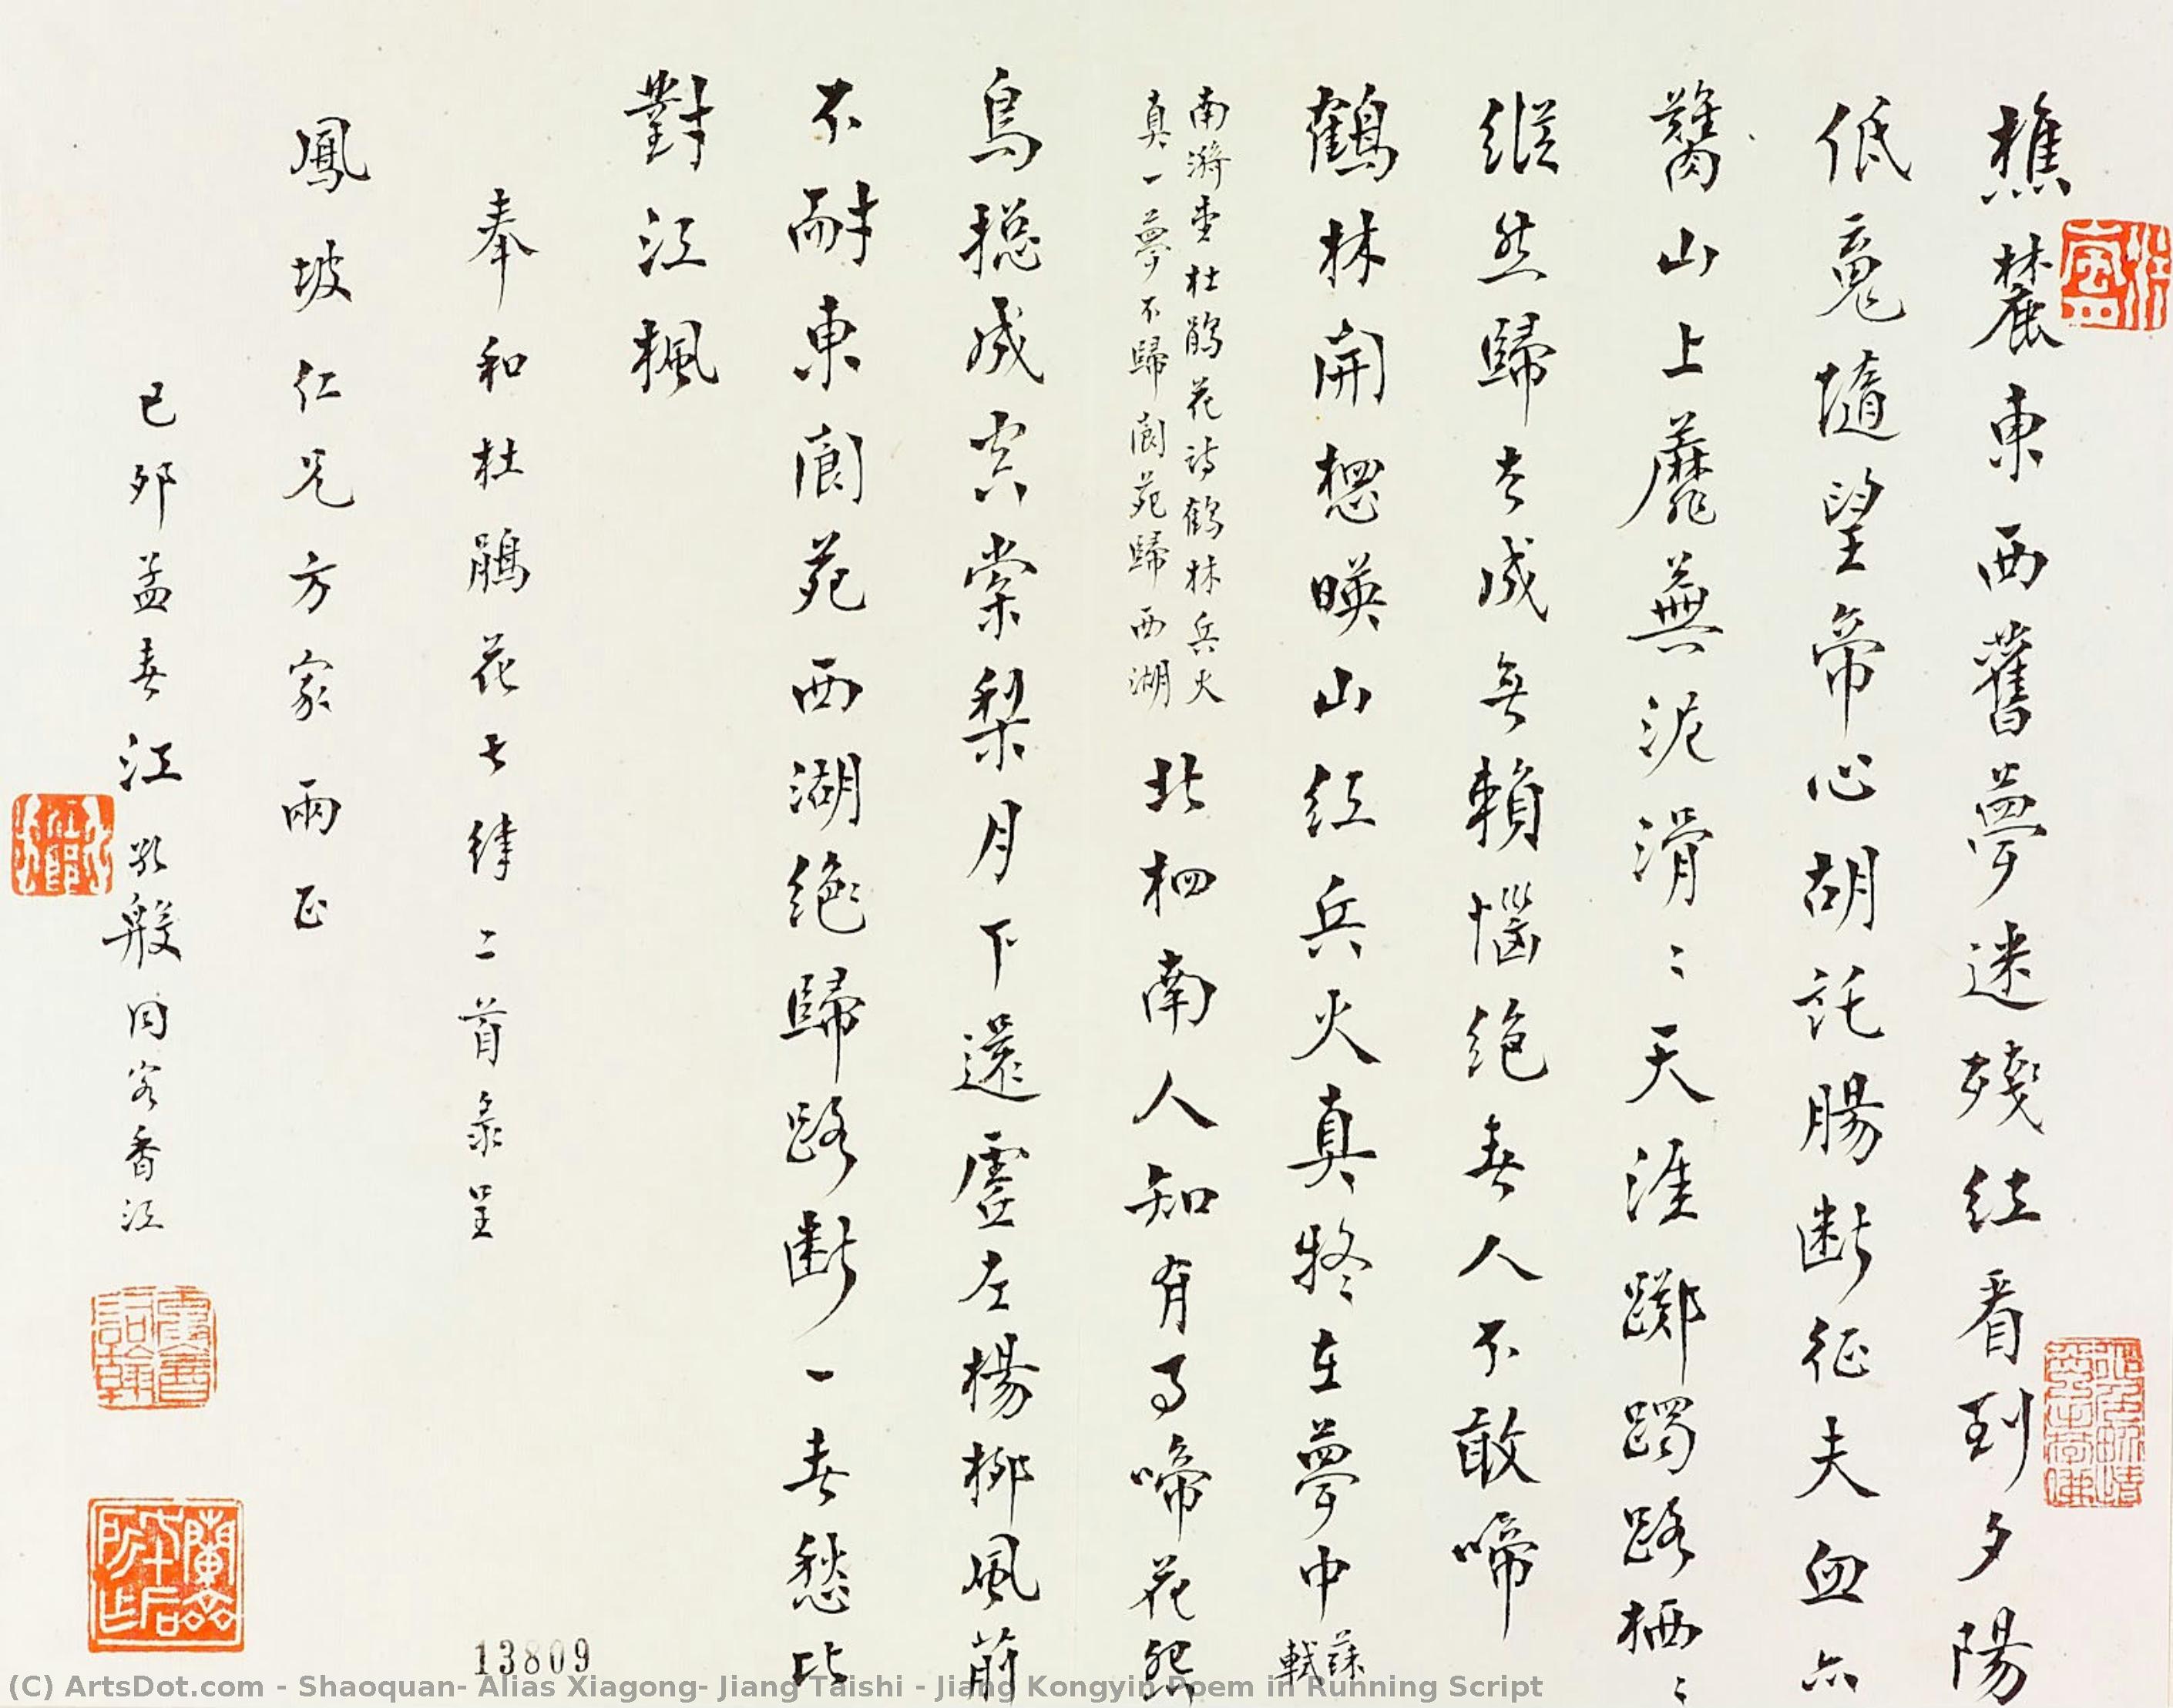 樵麓東西舊夢迷殘紅看到夕陽
低望帝心胡託腸斷征夫血亦
臡山上蘼蕪泥滑〻天涯躑躅路栖〻
縱然歸去成無賴惱絶春人不敢啼
鶴林開想暎山紅兵火真在夢中蘇軾
南漪堂杜鵑花詩鶴林兵火
真一夢不歸閬苑歸西湖
北南人知有事啼花怨
鳥總成空棠梨月下還虛左楊柳風前
不耐東閬苑西湖絶歸路斷一春愁比
對江楓
奉和杜鵑花七律二首录呈
鳳坡仁兄方家兩正
己卯孟春江孔殷同客香江
13809
(C) ArtsDot.com - Shaoquan- Alias Xiagong- Jiang Taishi - Jiang Kongyin Poem in Running Script